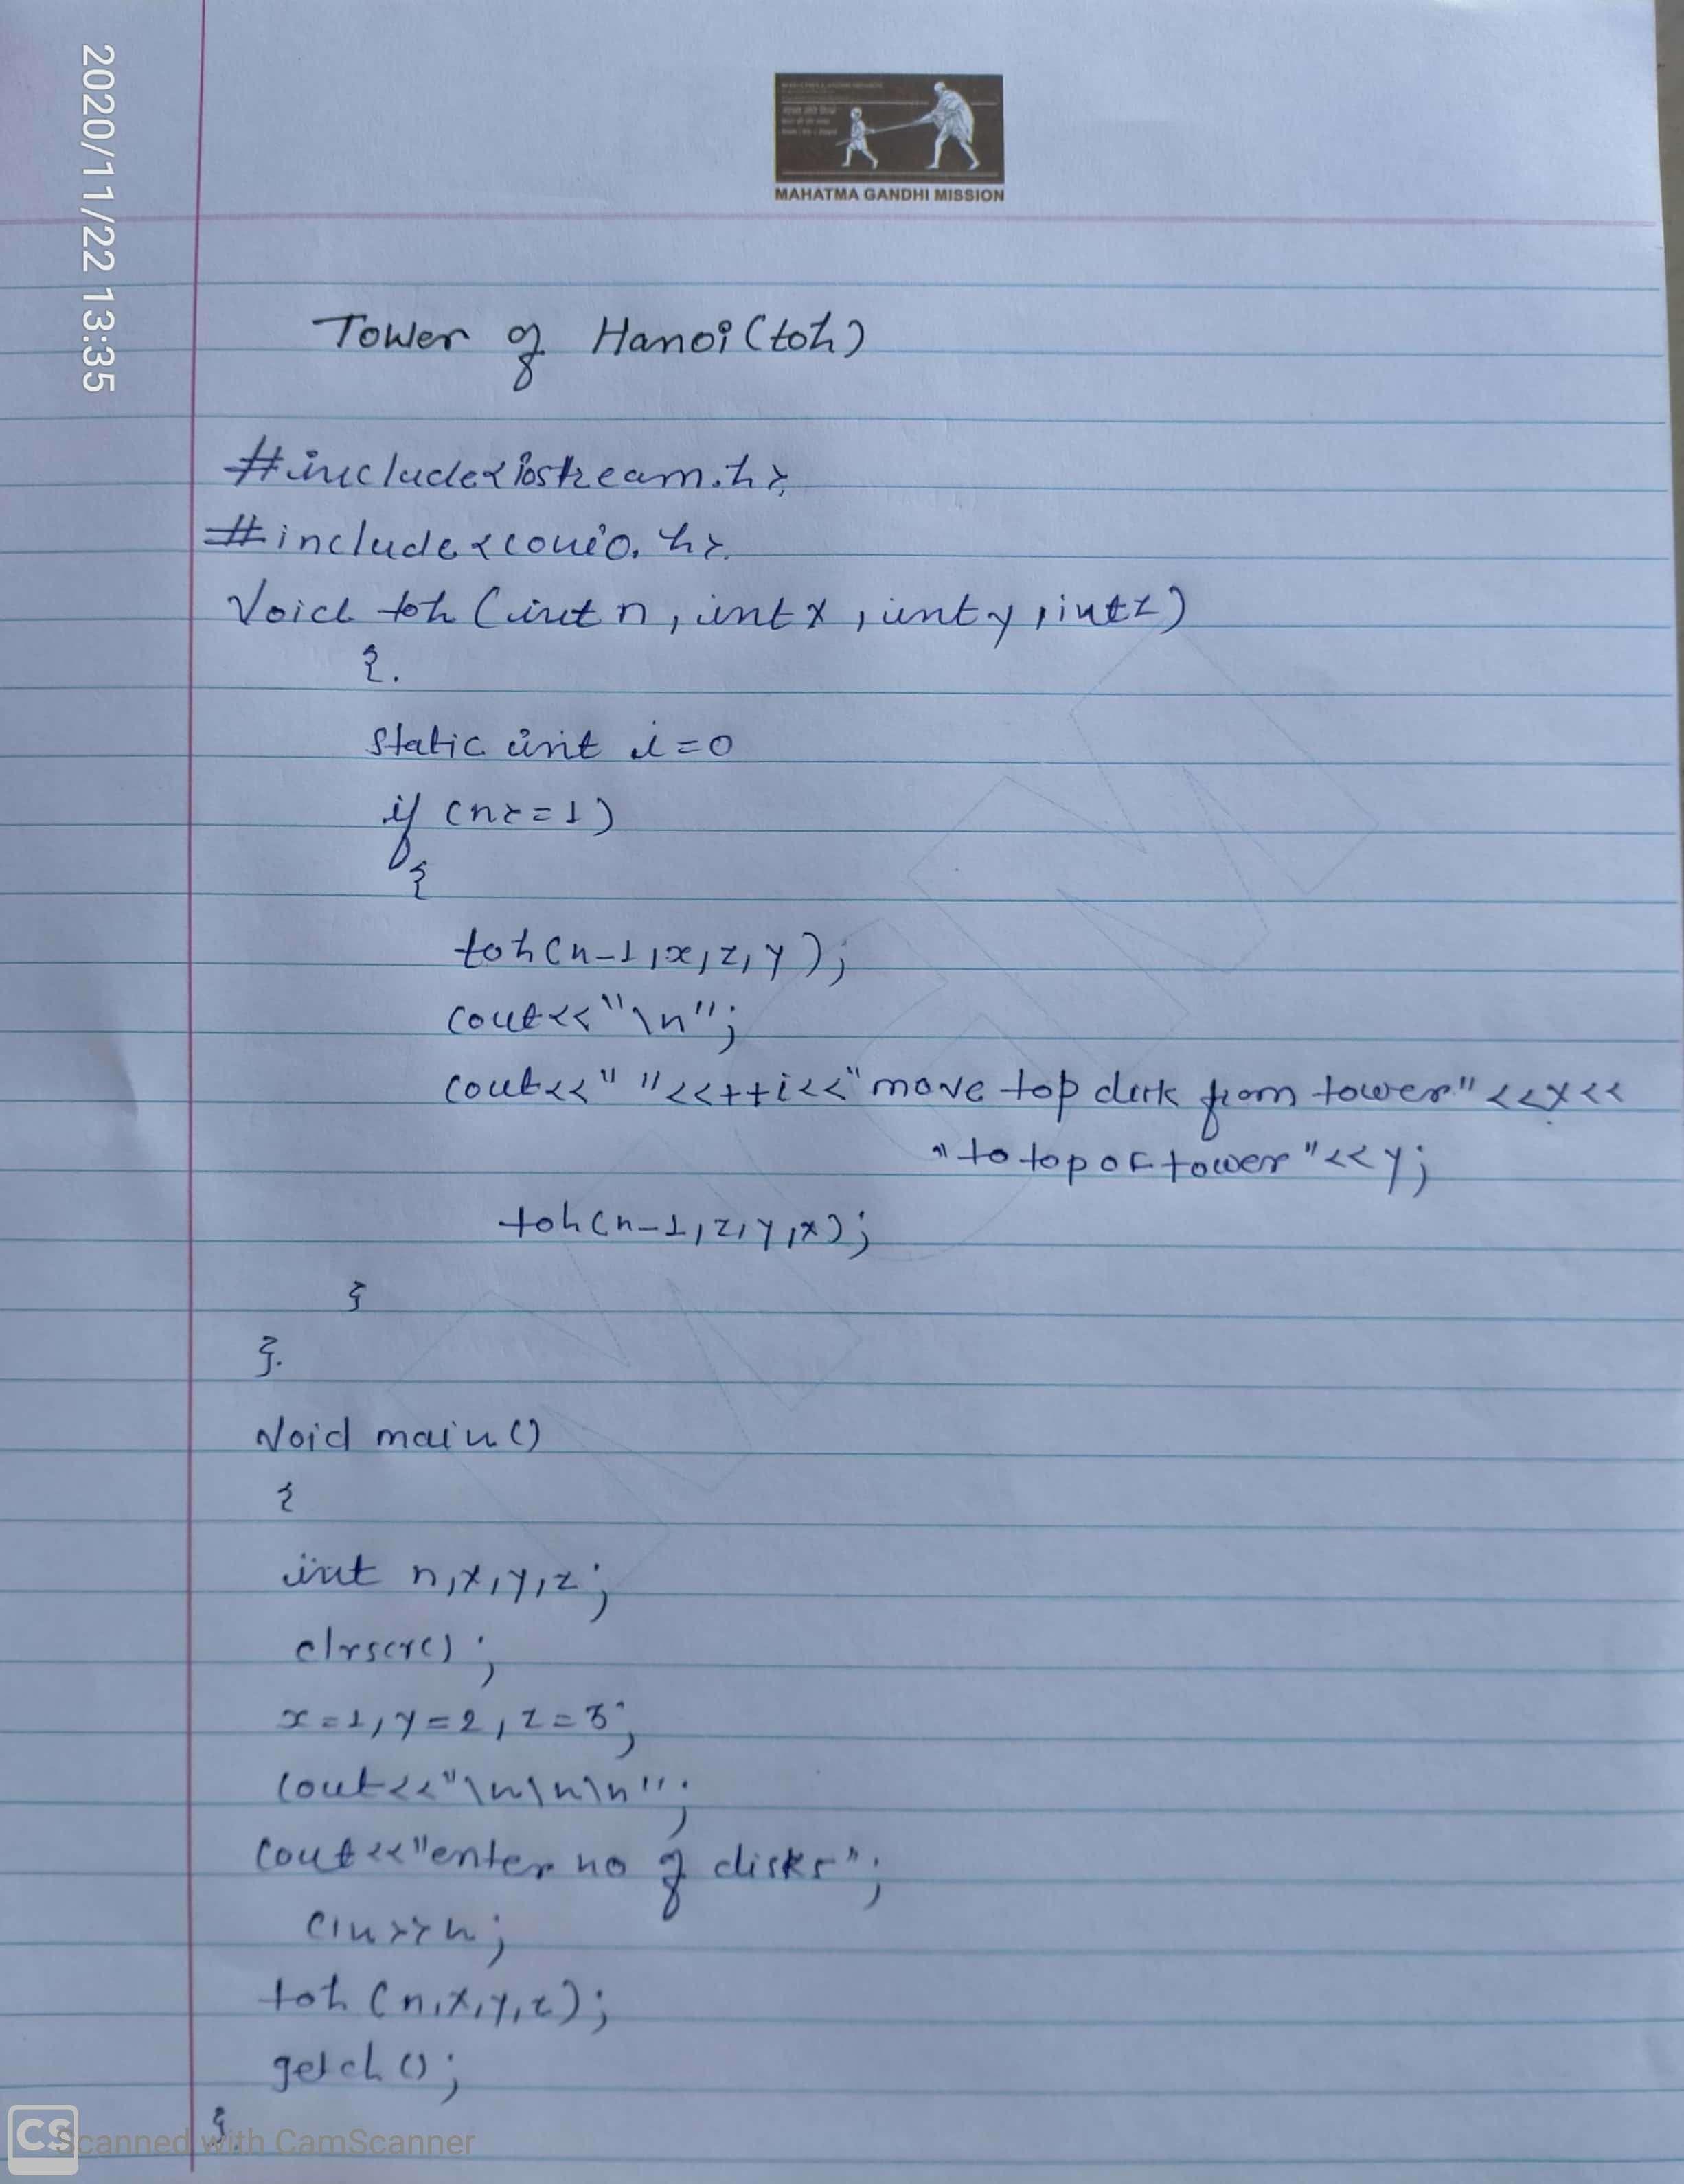 2020/11/22 13:35
MAHATMA GANDHI MISSION
Tower of Hanoi (toh)
#include<iostream.h>
#include<conio.h>
Void toh (int n, int x, int y, int z)
{.
static int i=0
if (n>=1)
{
toh(n-1,x,z,y);
cout<<"\n";
cout<<" "<<++i<<"move top disk from tower"<<x<<
"to top of tower"<<y;
toh(n-1,z,y,x);
}
}.
Void main()
{
int n,x,y,z;
clrscr();
x=1,y=2,z=3;
cout<<"\n\n\n";
cout<<"enter no of disks";
cin>>n;
toh (n,x,y,z);
getch();
}.
CS Scanned with CamScanner